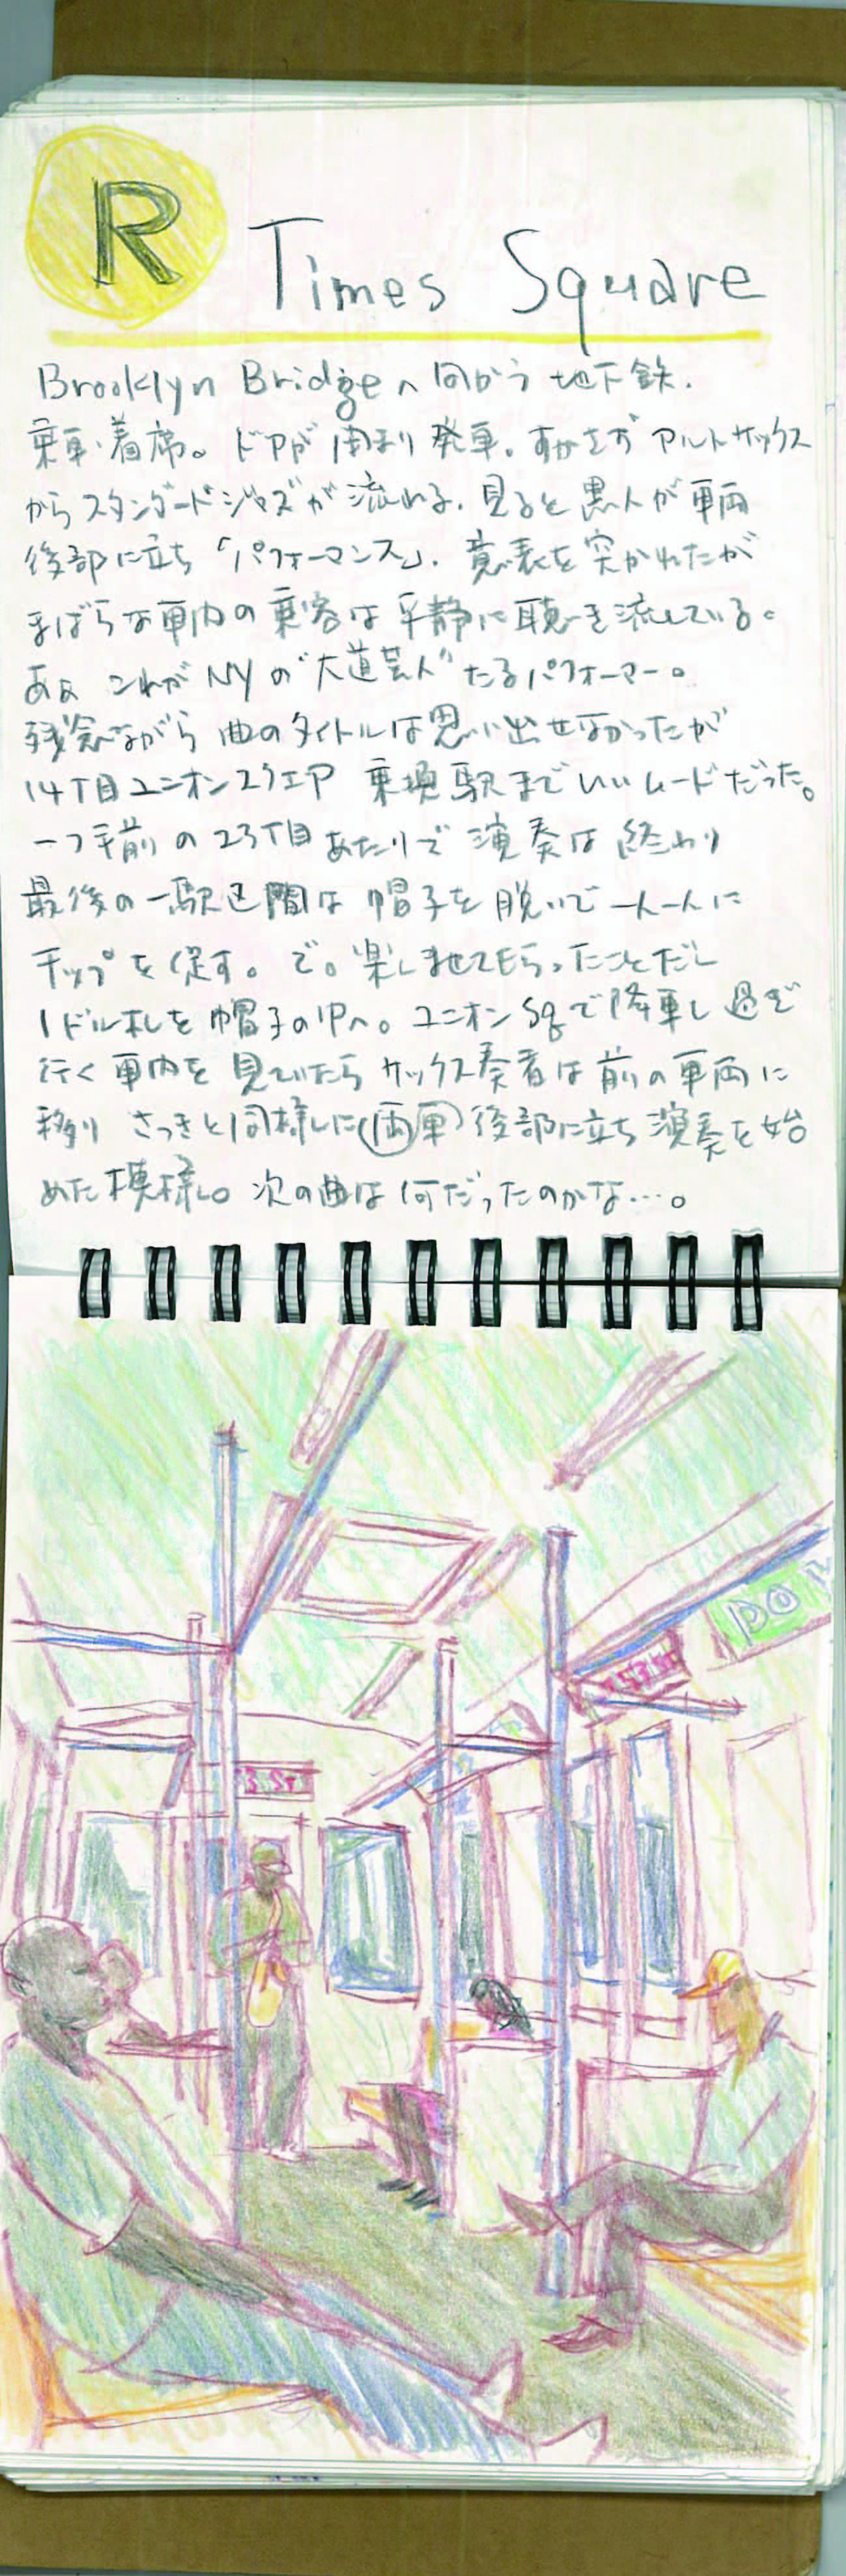 R Times Square
Brooklyn Bridgeへ向かう 地下鉄.
乗車・着席。ドアが閉まり発車。すかさず アルトサックス
からスタンダードジャズが流れる. 見ると黒人が車両
後部に立ち「パフォーマンス」. 意表を突かれたが
まばらな車内の乗客は平静に聴き流している。
あぁ これがNYの"大道芸人"たるパフォーマー。
残念ながら 曲のタイトルは思い出せなかったが
14丁目ユニオンスクエア 乗換駅までいいムードだった。
一つ手前の23丁目あたりで 演奏は終わり
最後の一駅区間は 帽子を脱いで一人一人に
チップを促す。で。楽しませてもらったことだし
1ドル札を 帽子の中へ。ユニオンSqで降車し 過ぎ
行く車内を見ていたら サックス奏者は前の車両に
移り さっきと同様に両車後部に立ち演奏を始
めた模様。次の曲は何だったのかな…。
3 ST
53 St
DO